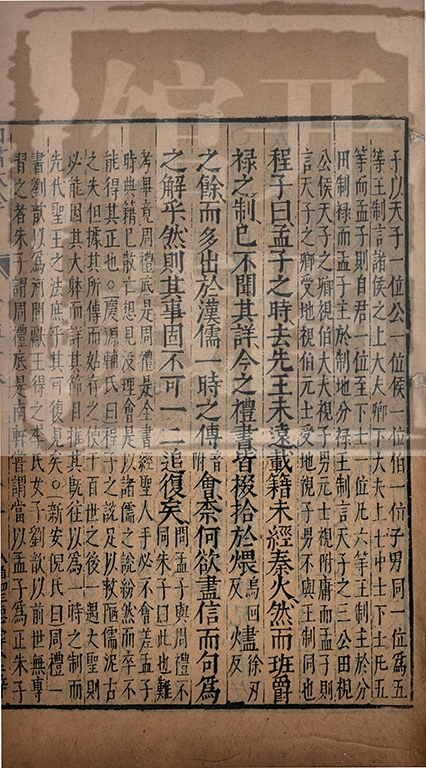 子以天子一位公一位侯一位伯一位子男同一位爲五
等王制言諸侯之上大夫卿下大夫上士中士下士凡五
等而孟子則自君一位至下士一位凡六等王制主於分
田制禄而孟子主於制地分禄王制言天子之三公田視
公侯天子之卿視伯大夫視子男元士視附庸而孟子則
言天子之卿受地視伯元士受地視子男不與王制同也
程子曰孟子之時去先王未遠載籍未經秦火然而班爵
禄之制已不聞其詳今之禮書皆掇拾於煨烏回反燼徐刃反
之餘而多出於漢儒一時之傅音附會奈何欲盡信而句爲
之解乎然則其事固不可一二追復矣問孟子與周禮不同朱子曰此也難
考畢竟周禮底是周禮是全書經聖人手必不會差孟子
時典籍已散亡想見没理會是以諸儒之說紛然而卒不
能得其正也○慶源輔氏曰程子之說足以救陋儒泥古
之失但據其所傳而姑存之使千百世之後一遇大聖則
必能因其大躰而詳其節目推其既往以爲一時之制而
先代聖王之法庶乎其可復見矣○新安倪氏曰周禮一
書劉歆以爲河間獻王得之李氏女子劉歆以前世無專
習之者朱子謂周禮底是南軒嘗謂當以孟子爲正朱子